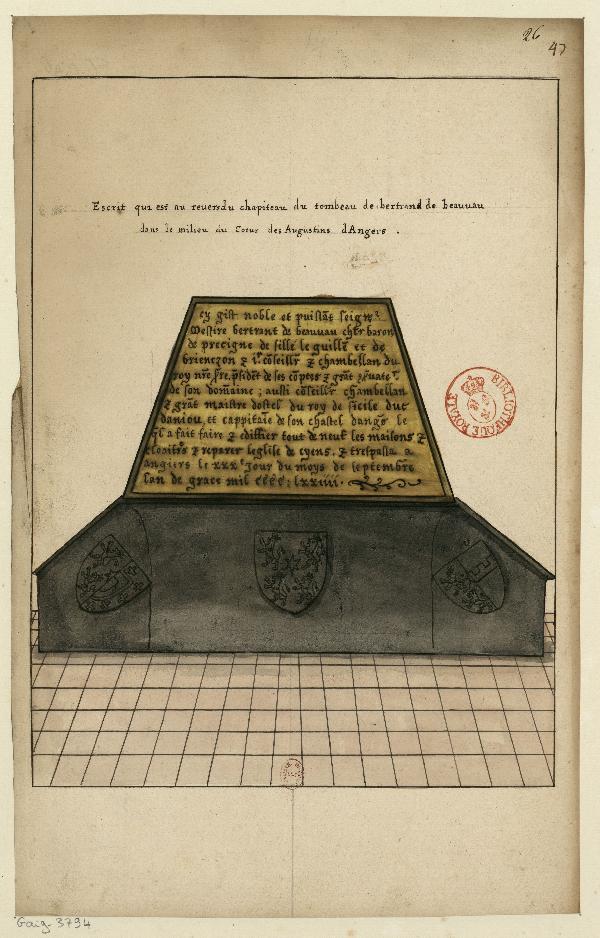 26
47
Escrit qui est au reuers du chapiteau du tombeau de bertrand de beauuau
dans le milieu du Cœur des Augustins d'Angers .
cy gist noble et puissãt seignr
Messire bertrant de beauuau chlr baron
de precigne de sille le guillẽ et de
brienczon & 1er cõseillr & chambellan du
roy nre de ses cõptes & grãt
de son domaine ; aussi cõseillr chambellan
& grãt maistre dostel du roy de sicile duc
daniou, et cappitaĩe de son chastel dangs le
ql a fait faire & ediffier tout de neuf les maisons &
cloaitrs & reparer leglise de cyens. & trespassa a
angiers le xxxe Jour du moys de septembre
lan de grace mil cccc: lxxiiii.
BIBLIOTHEQUE ROYALE
Gaig. 3794